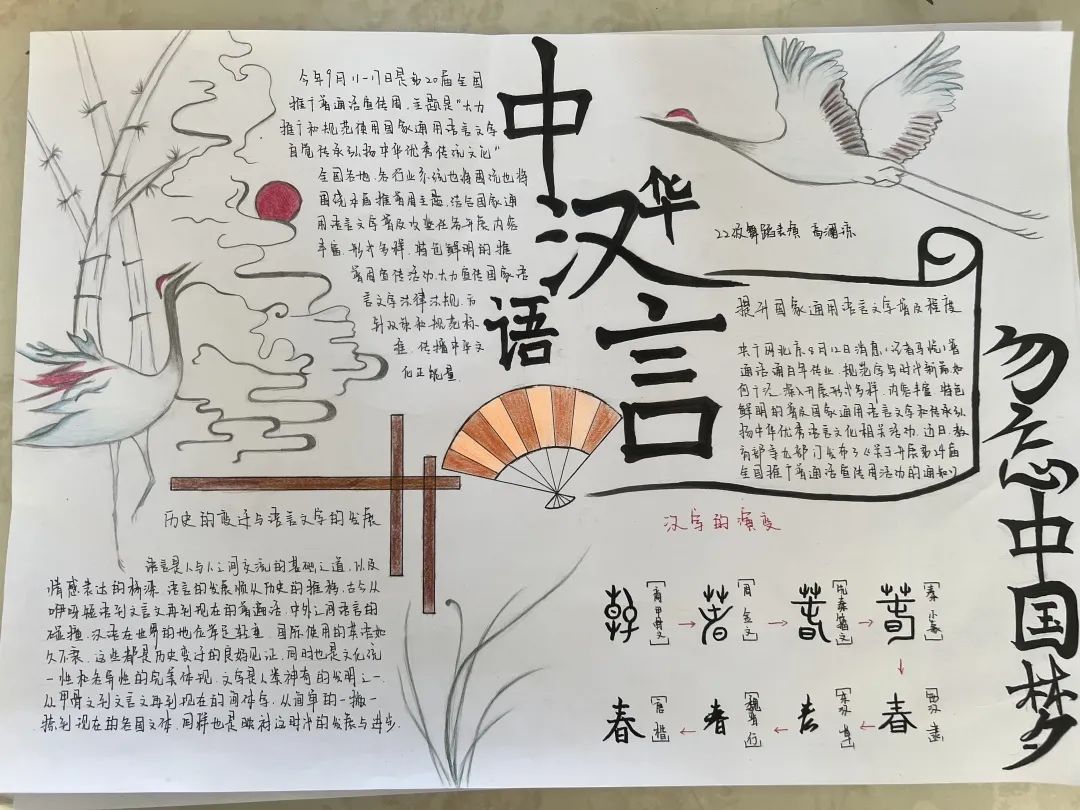 今年9月11-17日是第20届全国
推广普通话宣传周,主题是"大力
推广和规范使用国家通用语言文字
自觉传承弘扬中华优秀传统文化"
全国各地、各行业系统也将
围绕本届推普周主题,结合国家通
用语言文字普及攻坚任务开展内容
丰富、形式多样、特色鲜明的推
普周宣传活动,大力宣传国家语
言文字法律法规、方
针政策和规范标
准,传播中华文
化正能量.
中华
汉语言
22级舞蹈表演 高
提升国家通用语言文字普及程度
央广网北京9月12日消息(记者马悦)普
通话诵百年伟业,规范字写时代新篇.如
何广泛、深入开展形式多样、内容丰富、特色
鲜明的普及国家通用语言文字和传承弘
扬中华优秀语言文化相关活动,近日,教
育部等九部门发布了《关于开展第24届
全国推广普通话宣传周活动的通知》
勿忘中国梦
历史的变迁与语言文字的发展
语言是人与人之间交流的基础之道,以及
情感表达的桥梁.语言的发展顺从历史的推移,古今从
咿呀短语到文言文再到现在的普通话,中外之间语言的
碰撞,汉语在世界的地位举足轻重,国际使用的英语如
久不衰,这些都是历史变迁的良好见证,同时也是文化统
一性和差异性的完美体现.文字是人类神奇的发明之一,
从甲骨文到文言文再到现在的简体字,从简单的一撇一
捺到现在的各国文体,同样也是映衬这时代的发展与进步.
汉字的演变
[商 甲骨文] → [周 金文] → [ 文] → [秦 小篆]
春 [唐 楷] ← 春 [魏晋 行] ← [东汉 草] ← 春 [西汉 隶]